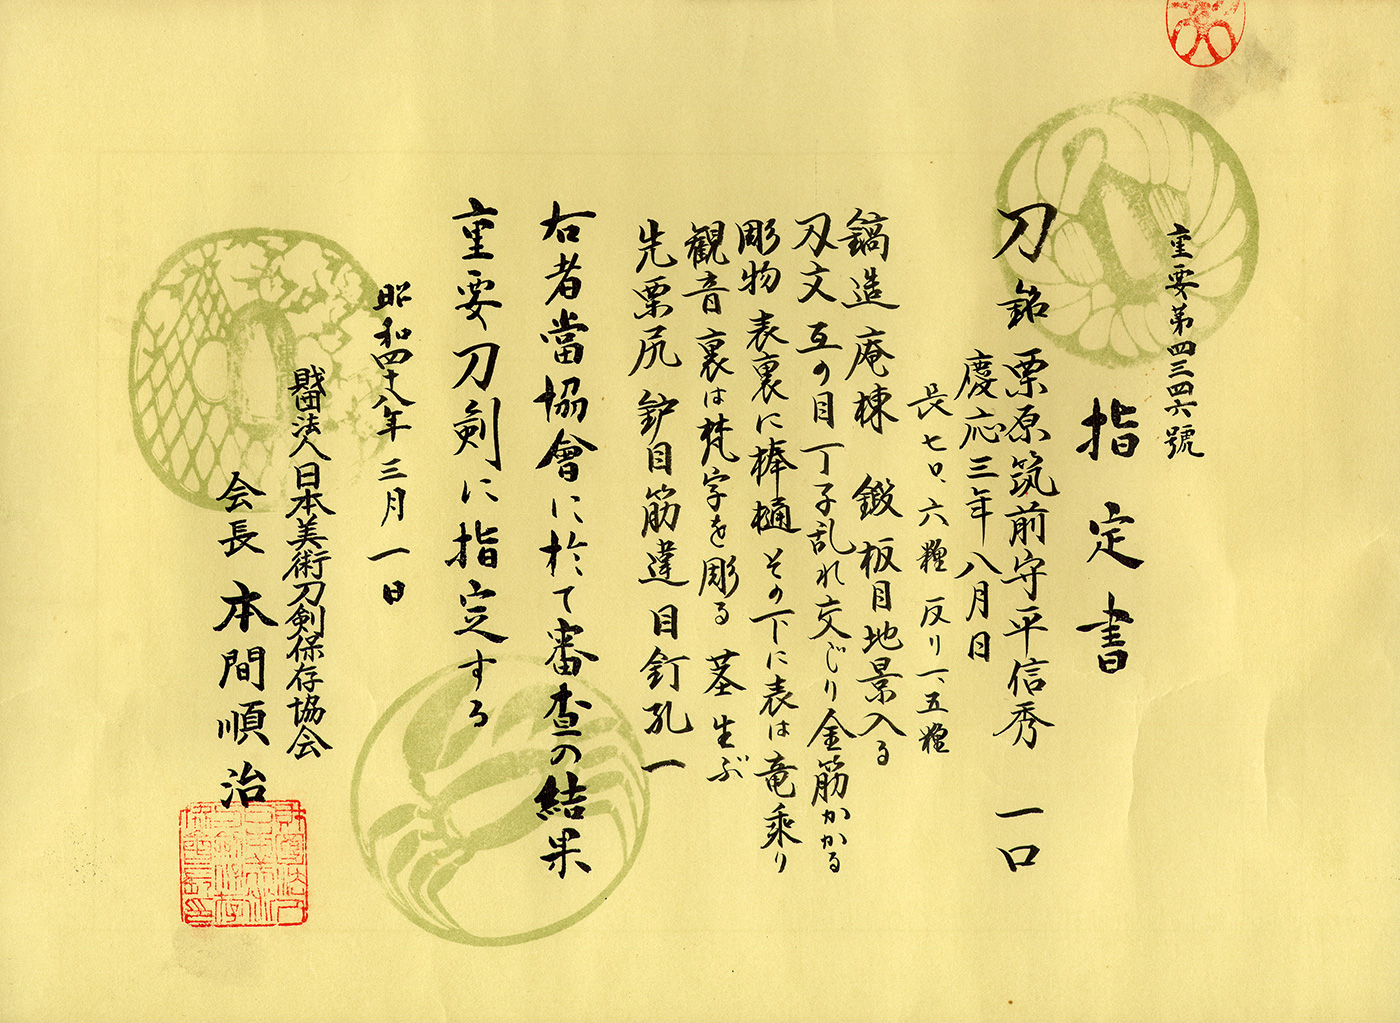 重要第四三四六號
指定書
刀 銘 栗原筑前守平信秀 一口
慶応三年八月日
長七〇、六糎 反り一、五糎
鎬造 庵棟 鍛 板目地景入る
刃文 互の目丁子乱れ交じり金筋かかる
彫物 表裏に棒樋 その下に表は竜乗り
観音 裏は梵字を彫る 茎 生ぶ
先栗尻 鈩目筋違 目釘孔一
右者當協會に於て審査の結果
重要刀剣に指定する
昭和四十八年三月一日
財団法人日本美術刀剣保存協会
会長 本間順治